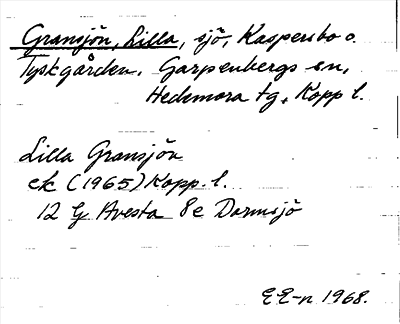 Gransjön, Lilla, sjö, Kaspersbo o.
Tyskgården, Garpenbergs sn,
Hedemora tg, Kopp l.
Lilla Gransjön
ek (1965) Kopp. l.
12 G Avesta 8e Dormsjö
EE-n 1968.